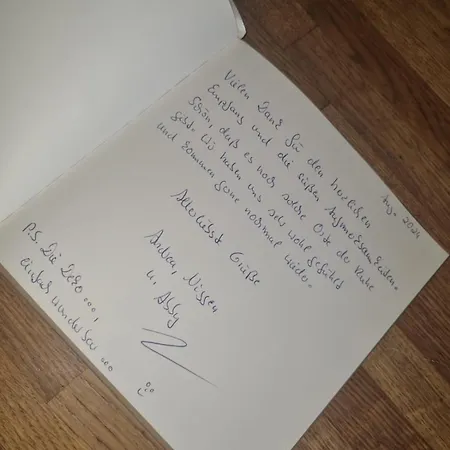 Aug. 2024
Vielen Dank für den herzlichen
Empfang und die süßen Aufmerksamkeiten.
Schön, daß es noch solche Orte der Ruhe
gibt. Wir haben uns sehr wohl gefühlt
und kommen gerne nochmal wieder.
Allerliebste Grüße
Nissen
u. Abby
P.S. Die Deko...,
einfach wunderbar...